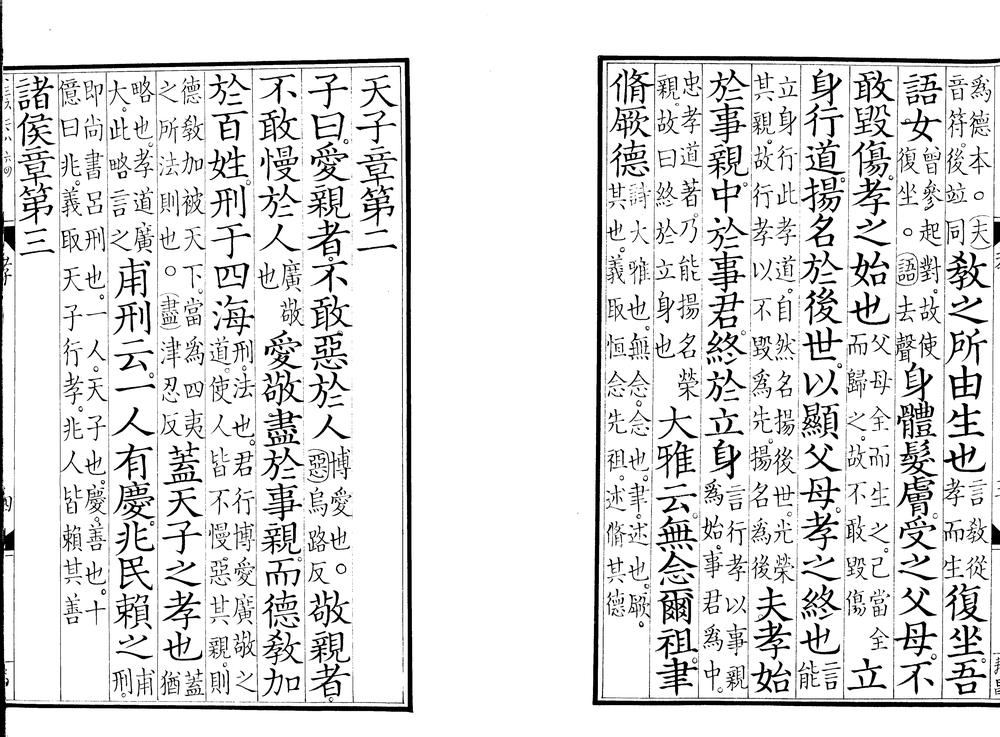 爲德本。夫音符後竝同教之所由生也言教從孝而生復坐。吾
語女曾參起對。故使復坐。語去聲身體髮膚。受之父母。不
敢毀傷。孝之始也父母全而生之。己當全而歸之。故不敢毀傷立
身行道。揚名於後世。以顯父母。孝之終也言能
立身行此孝道。自然名揚後世。光榮其親。故行孝以不毀爲先。揚名爲後夫孝始
於事親。中於事君。終於立身言行孝以事親爲始。事君爲中。
忠孝道著。乃能揚名榮親。故曰終於立身也大雅云。無念爾祖。聿
脩厥德詩大雅也。無念。念也。聿。述也。厥。其也。義取恒念先祖。述脩其德
天子章第二
子曰。愛親者。不敢惡於人博愛也。惡烏路反敬親者。
不敢慢於人廣敬也愛敬盡於事親。而德教加
於百姓。刑于四海刑。法也。君行博愛廣敬之道。使人皆不慢惡其親。則
德教加被天下。當爲四夷之所法則也。盡津忍反蓋天子之孝也蓋猶
略也。孝道廣大。此略言之甫刑云。一人有慶。兆民賴之甫刑。
即尚書呂刑也。一人。天子也。慶。善也。十億曰兆。義取天子行孝。兆人皆賴其善
諸侯章第三